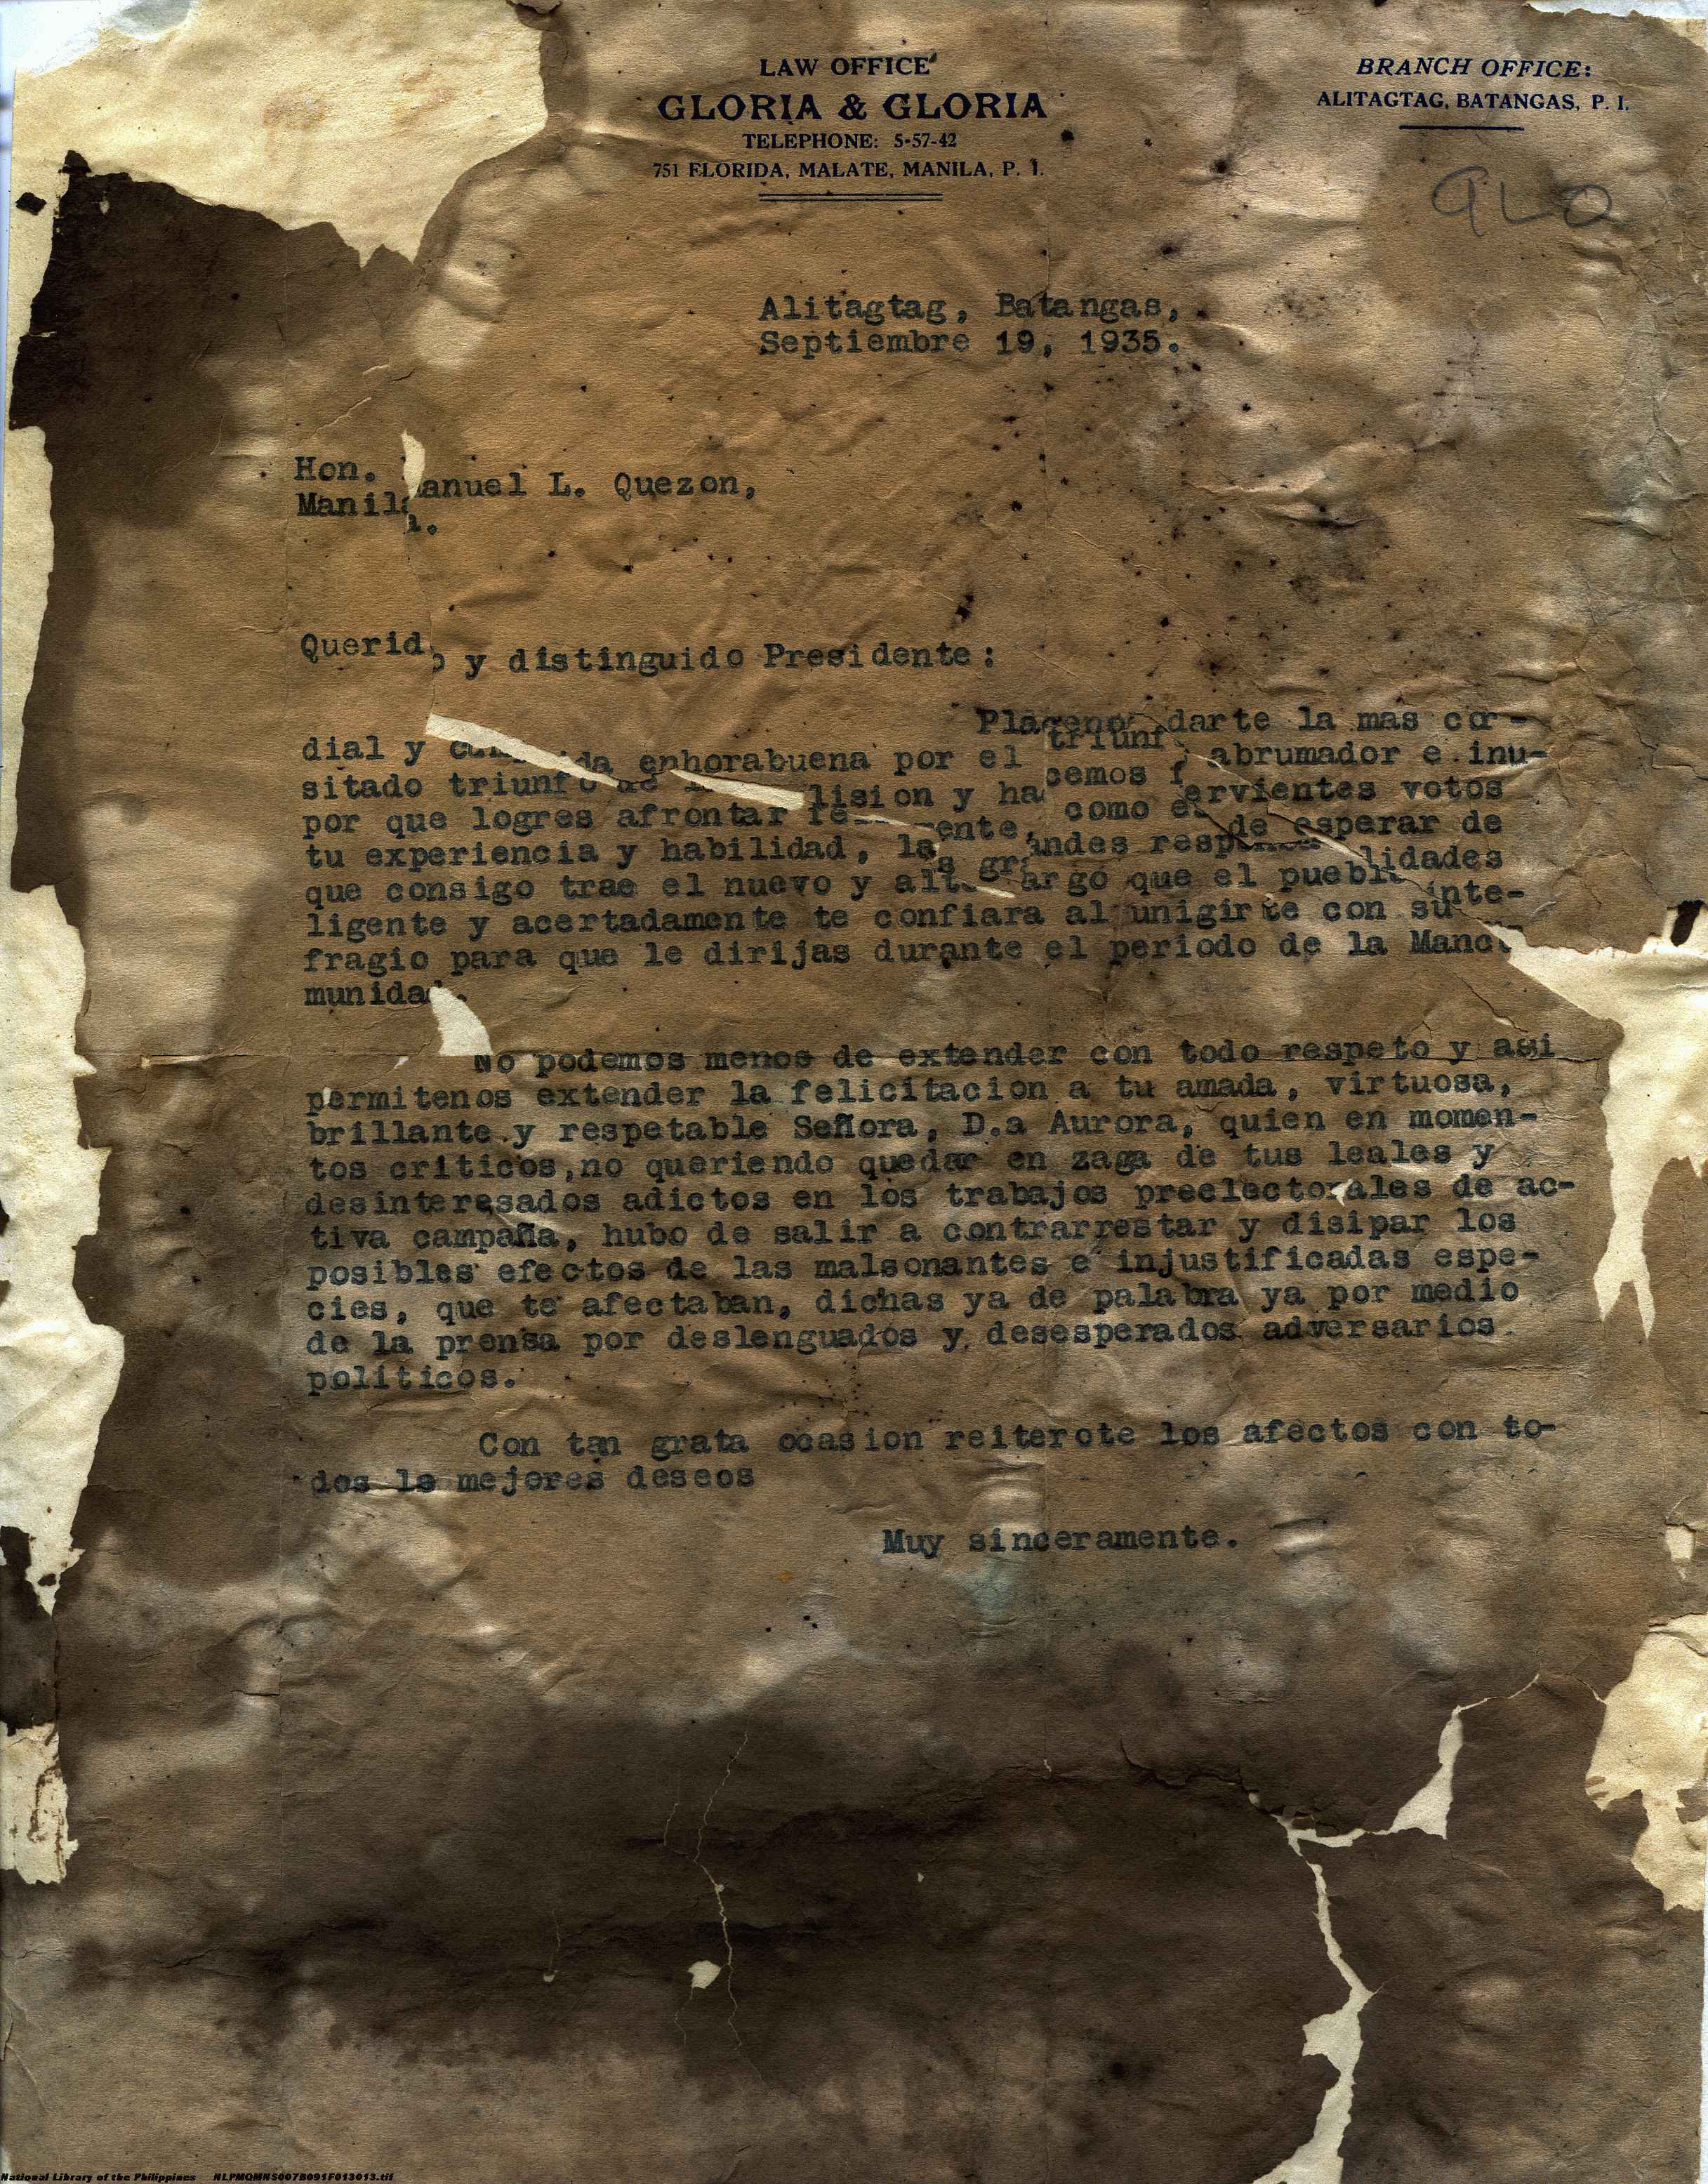 LAW OFFICE
GLORIA & GLORIA
TELEPHONE: 5-57-42
751 FLORIDA, MALATE, MANILA, P. I.
BRANCH OFFICE:
ALITAGTAG, BATANGAS, P. I.
Alitagtag, Batangas,
Septiembre 19, 1935.
Hon. Manuel L. Quezon,
Manila.
Querido y distinguido Presidente:
darte la mas cor-
dial y enhorabuena por el triunfo abrumador e inu-
sitado triunfo y hacemos fervientes votos
por que logres afrontar como es de esperar de
tu experiencia y habilidad, las grandes responsabilidades
que consigo trae el nuevo y alto cargo que el pueblo inte-
ligente y acertadamente te confiara al unigirte con su
fragio para que le dirijas durante el periodo de la Manco
munidad.
No podemos menos de extender con todo respeto y asi
permitenos extender la felicitacion a tu amada, virtuosa,
brillante y respetable Señora, D.a Aurora, quien en momen-
tos criticos,no queriendo quedar en zaga de tus leales y
desinteresados adictos en los trabajos preelectorales de ac-
tiva campaña, hubo de salir a contrarrestar y disipar los
posibles efectos de las malsonantes e injustificadas espe-
cies, que te afectaban, dichas ya de palabra ya por medio
de la prensa por deslenguados y desesperados adversarios
politicos.
Con tan grata ocasion reiterote los afectos con to-
dos ls mejores deseos
Muy sinceramente.
National Library of the Philippines NLPMQMNS007B091F013013.tif